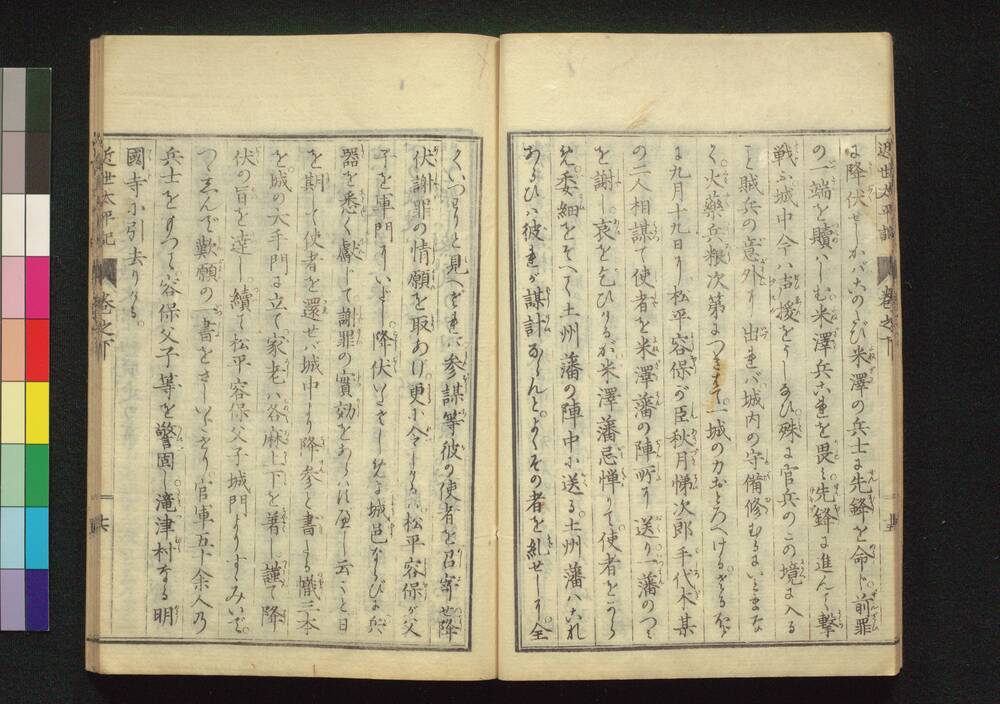 近世太平記 巻之下
に降伏せしかバこのたび米澤の兵士に先鋒を命じ前罪
の一端を贖ハしむ米澤兵これを畏み先鋒に進んで撃
戦ふ城中今ハ古援をうしなひ殊に官兵のこの境に入る
こと賊兵の意外に出れバ城内の守備修むるにいとまな
く火藥兵粮次第につきはて一城の力おとろへけるさるほど
に九月十九日に松平容保が臣秋月悌次郎手代木某
の二人相謀て使者を米澤藩の陣所に送り一藩のつミ
を謝し哀を乞ひけるが米澤藩忌憚りて使者をして
委細を土州藩の陣中に送る土州藩ハこれ
あるひハ彼れが謀計ならんとよくその者を糺せしに全
くいつはりと見へざれバ参謀等彼の使者を召寄せ降
伏謝罪の情願を取あげ更に令しけるハ松平容保が父
子を軍門にいでて降伏いたさしめよ城邑ならびに兵
器を悉く獻じて謝罪の實効をあらハすべし云々と日
を期して使者を還せバ城中より降参と書たる幟三本
を城の大手門に立て家老ハ各麻上下を著し謹て降
伏の旨を達し續て松平容保父子城門よりすゝみいで
つゝしんで歎願の一書をさしいだせり官軍五十余人の
兵士をもつて容保父子等を警固し滝津村なる明
國寺に引去りける
近世太平記 巻之下 十六